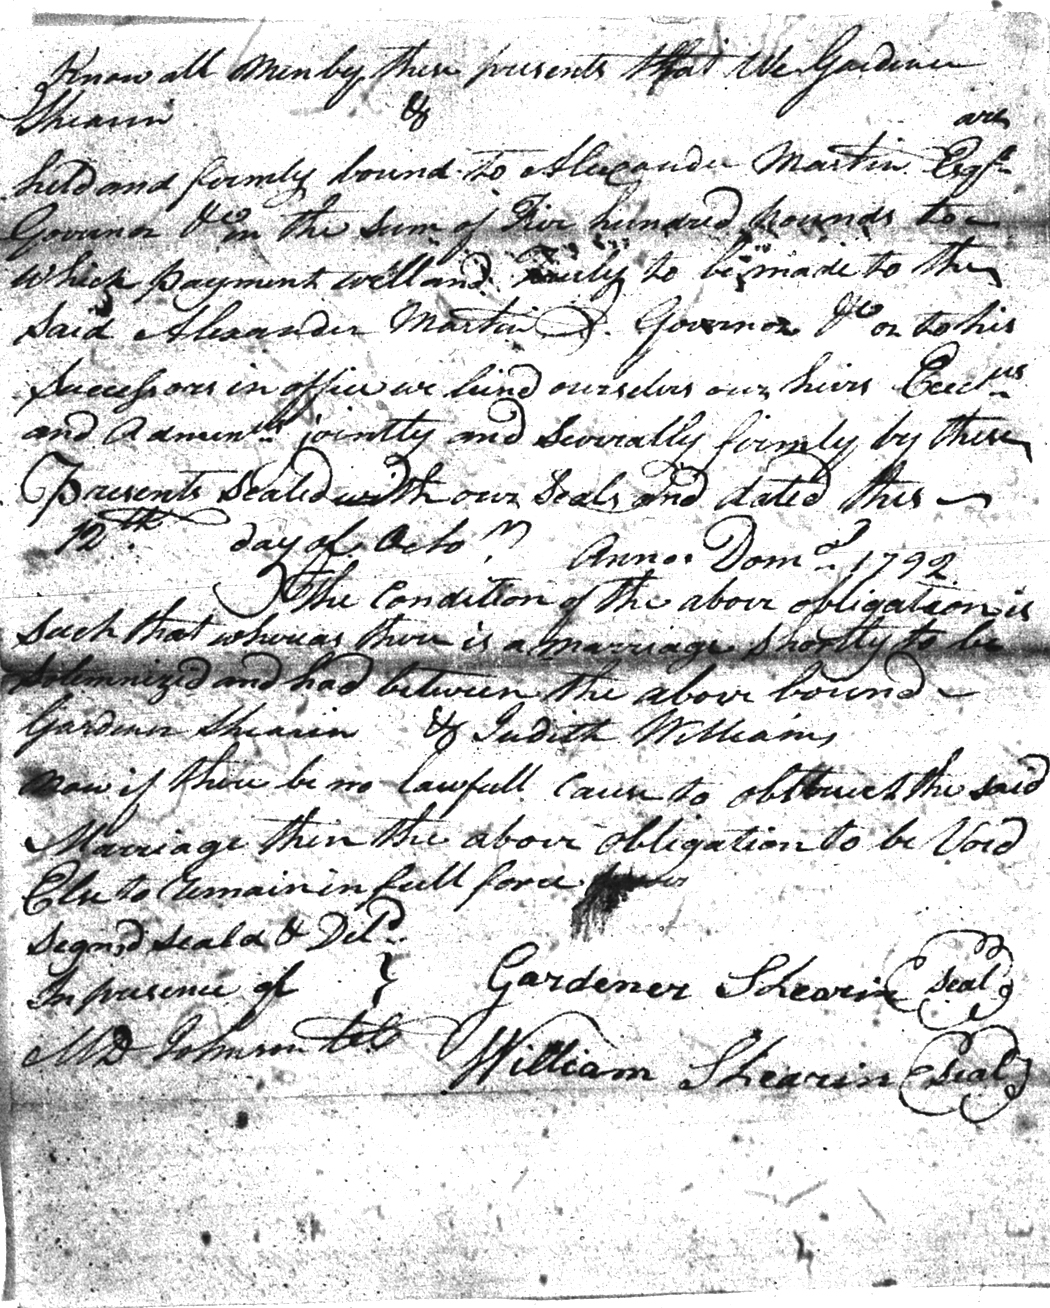 Know all Men by these presents that We Gardener
Shearin & are
held and firmly bound to Alexander Martin Esqr
Governor &c in the Sum of Five hundred pounds to
which payment well and Truly to be made to the
said Alexander Martin Governor &c or to his
Successors in office we bind ourselves our heirs Exectrs
and Adminrs jointly and Severally firmly by these
Presents Sealed with our Seals and dated this
12th day of Octor Anno Domi 1792
The Condition of the above obligation is
Such that whereas there is a marriage Shortly to be
Solemnized and had between the above bound
Gardener Shearin & Judith Williams
Now if there be no lawfull Cause to obstruct the said
Marriage then the above obligation to be Void
Else to remain in full force
Signd Seald & Deld
In presence of
MD Johnson
Gardener Shearin Seal
William Shearin Seal